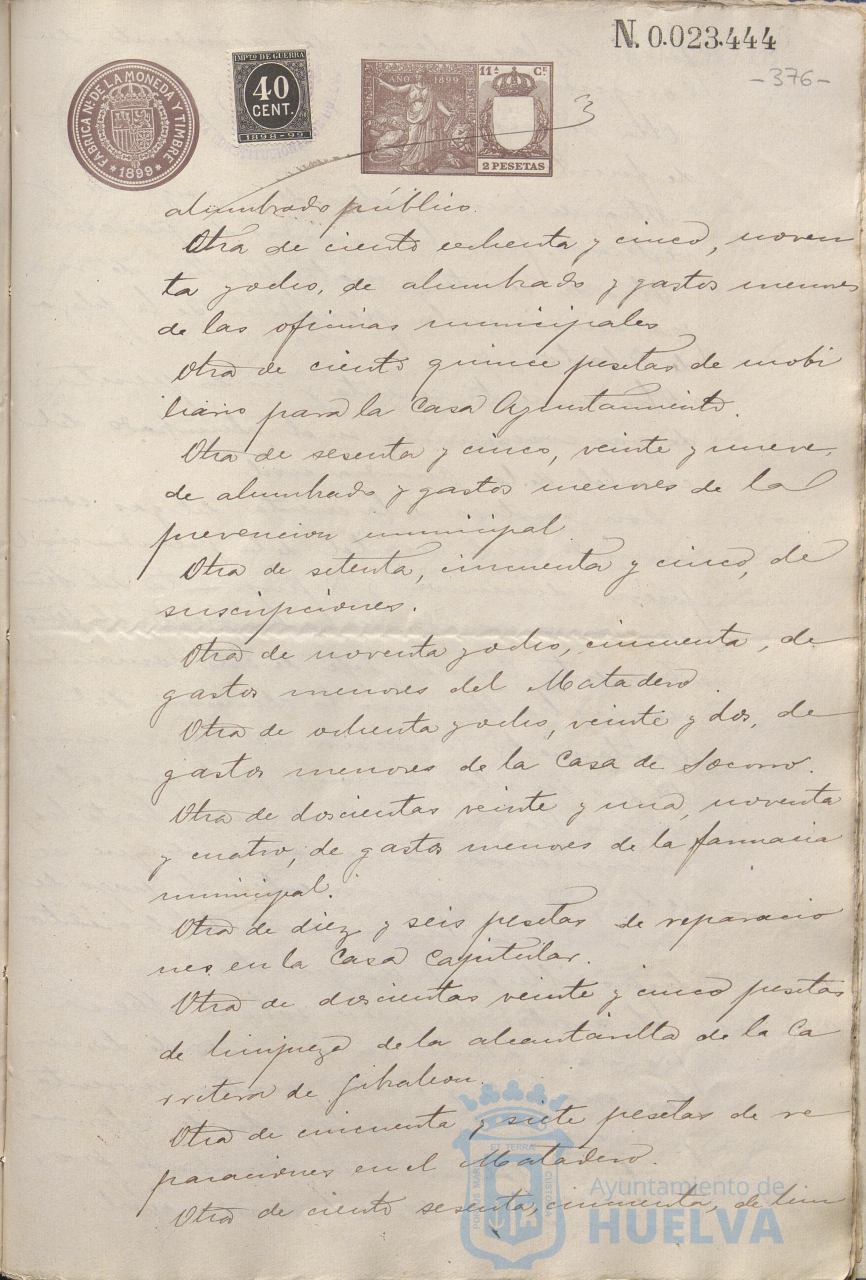 N. 0.023.444
-376-
FABRICA Nᴸ DE LA MONEDA Y TIMBRE
* 1899 *
IMPTO DE GUERRA
40
CENT.
1898-99
AÑO 1899
11ª Cᴱ
2 PESETAS
3
alumbrado público.
Otra de ciento ochenta y cinco, noven
ta y ocho, de alumbrado y gastos menores
de las oficinas municipales
Otra de ciento quince pesetas de mobi
liario para la Casa Ayuntamiento.
Otra de sesenta y cinco, veinte y nueve,
de alumbrado y gastos menores de la
prevencion municipal
Otra de setenta, cincuenta y cinco, de
suscripciones.
Otra de noventa y ocho, cincuenta, de
gastos menores del Matadero.
Otra de ochenta y ocho, veinte y dos, de
gastos menores de la Casa de Socorro.
Otra de doscientas veinte y una, noventa
y cuatro, de gastos menores de la farmacia
municipal.
Otra de diez y seis pesetas de reparacio
nes en la Casa Capitular.
Otra de doscientas veinte y cinco pesetas
de limpieza de la alcantarilla de la Ca
rretera de Gibraleon.
Otra de cincuenta y siete pesetas de re
paraciones en el Matadero.
Otra de ciento sesenta, cincuenta, de lim
ET TERRA
PORTUS MARIS
CUSTODIA
Ayuntamiento de
HUELVA